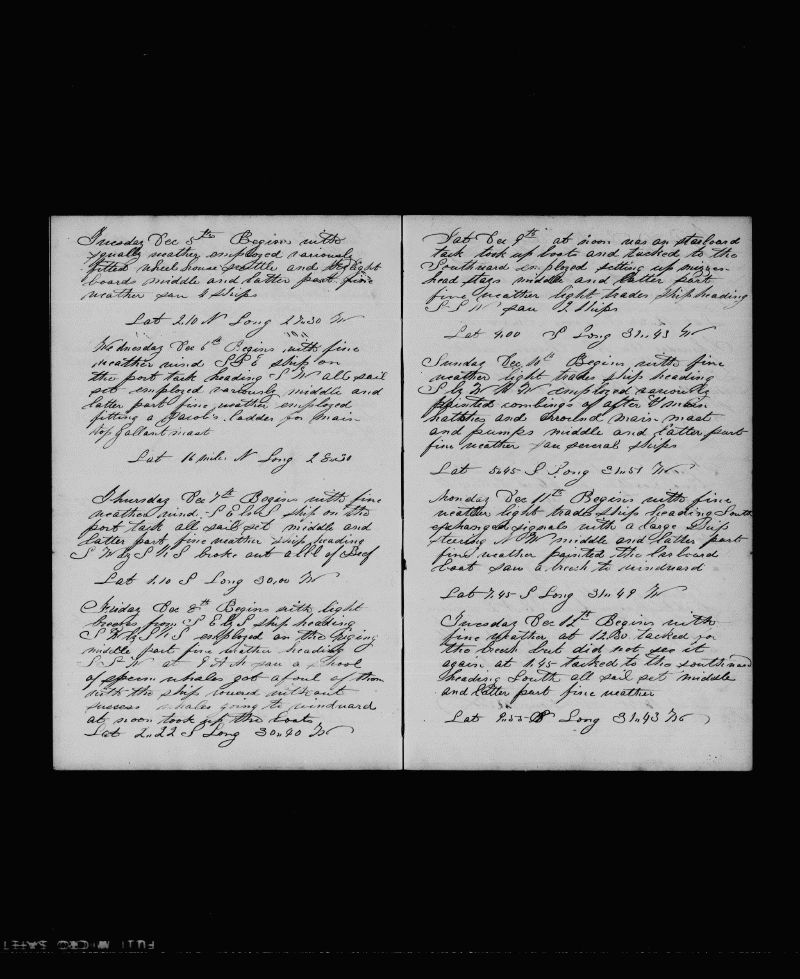 Tuesday Dec 5th Begins with
squally weather employed variously
fitted wheel house settle and light
boards middle and latter part fine
weather saw 4 ships
Lat 2.10 N Long 27"30 W
Wednesday Dec 6th Begins with fine
weather wind S B E ship on
the port tack heading S W all sail
set employed variously middle and
latter part fine weather employed
fitting a Jacob's ladder for main
top gallant mast
Lat 16 miles N Long 28"30
Thursday Dec 7th Begins with fine
weather wind S E by S ship on the
port tack all sail set middle and
latter part fine weather ship heading
S W by S W S broke out a bbl of Beef
Lat 1.10 S Long 30,00 W
Friday Dec 8th Begins with light
breezes from S E by S ship heading
S W by S W S employed on the riging
middle part fine weather heading
S S W at 9 A M saw a shool
of sperm whales got afoul of them
with the ship lowed without
success whales going to windward
at noon took up the boats
Lat 2"22 S Long 30"40 W
Sat Dec 9th at noon was on starboard
tack took up boats and tacked to the
Southward employed setting up mizzen
head stays middle and latter part
fine weather light trades ship heading
S S W saw 2 ships
Lat 4.00 S Long 31"43 W
Sunday Dec 10th Begins with fine
weather light trades ship heading
S employed variously
painted combings of after & main
hatches and around main mast
and pumps middle and latter part
fine weather saw several ships
Lat 5"45 S Long 31"51 W
Monday Dec 11th Begins with fine
weather light trades ship heading South
exchanged signals with a large Ship
steering N W middle and latter part
fine weather painted the larboard
boat saw a brech to windward
Lat 7.45 S Long 31"49 W
Tuesday Dec 12th Begins with
fine weather at 12.30 tacked for
the brech but did not see it
again at 1.45 tacked to the southward
heading South all sail set middle
and latter part fine weather
Lat 9.55 S Long 31"43 W
FUJI MICRO SAFET